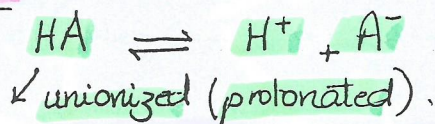 HA ⇌ H⁺ + A⁻
↙ unionized (prolonated).